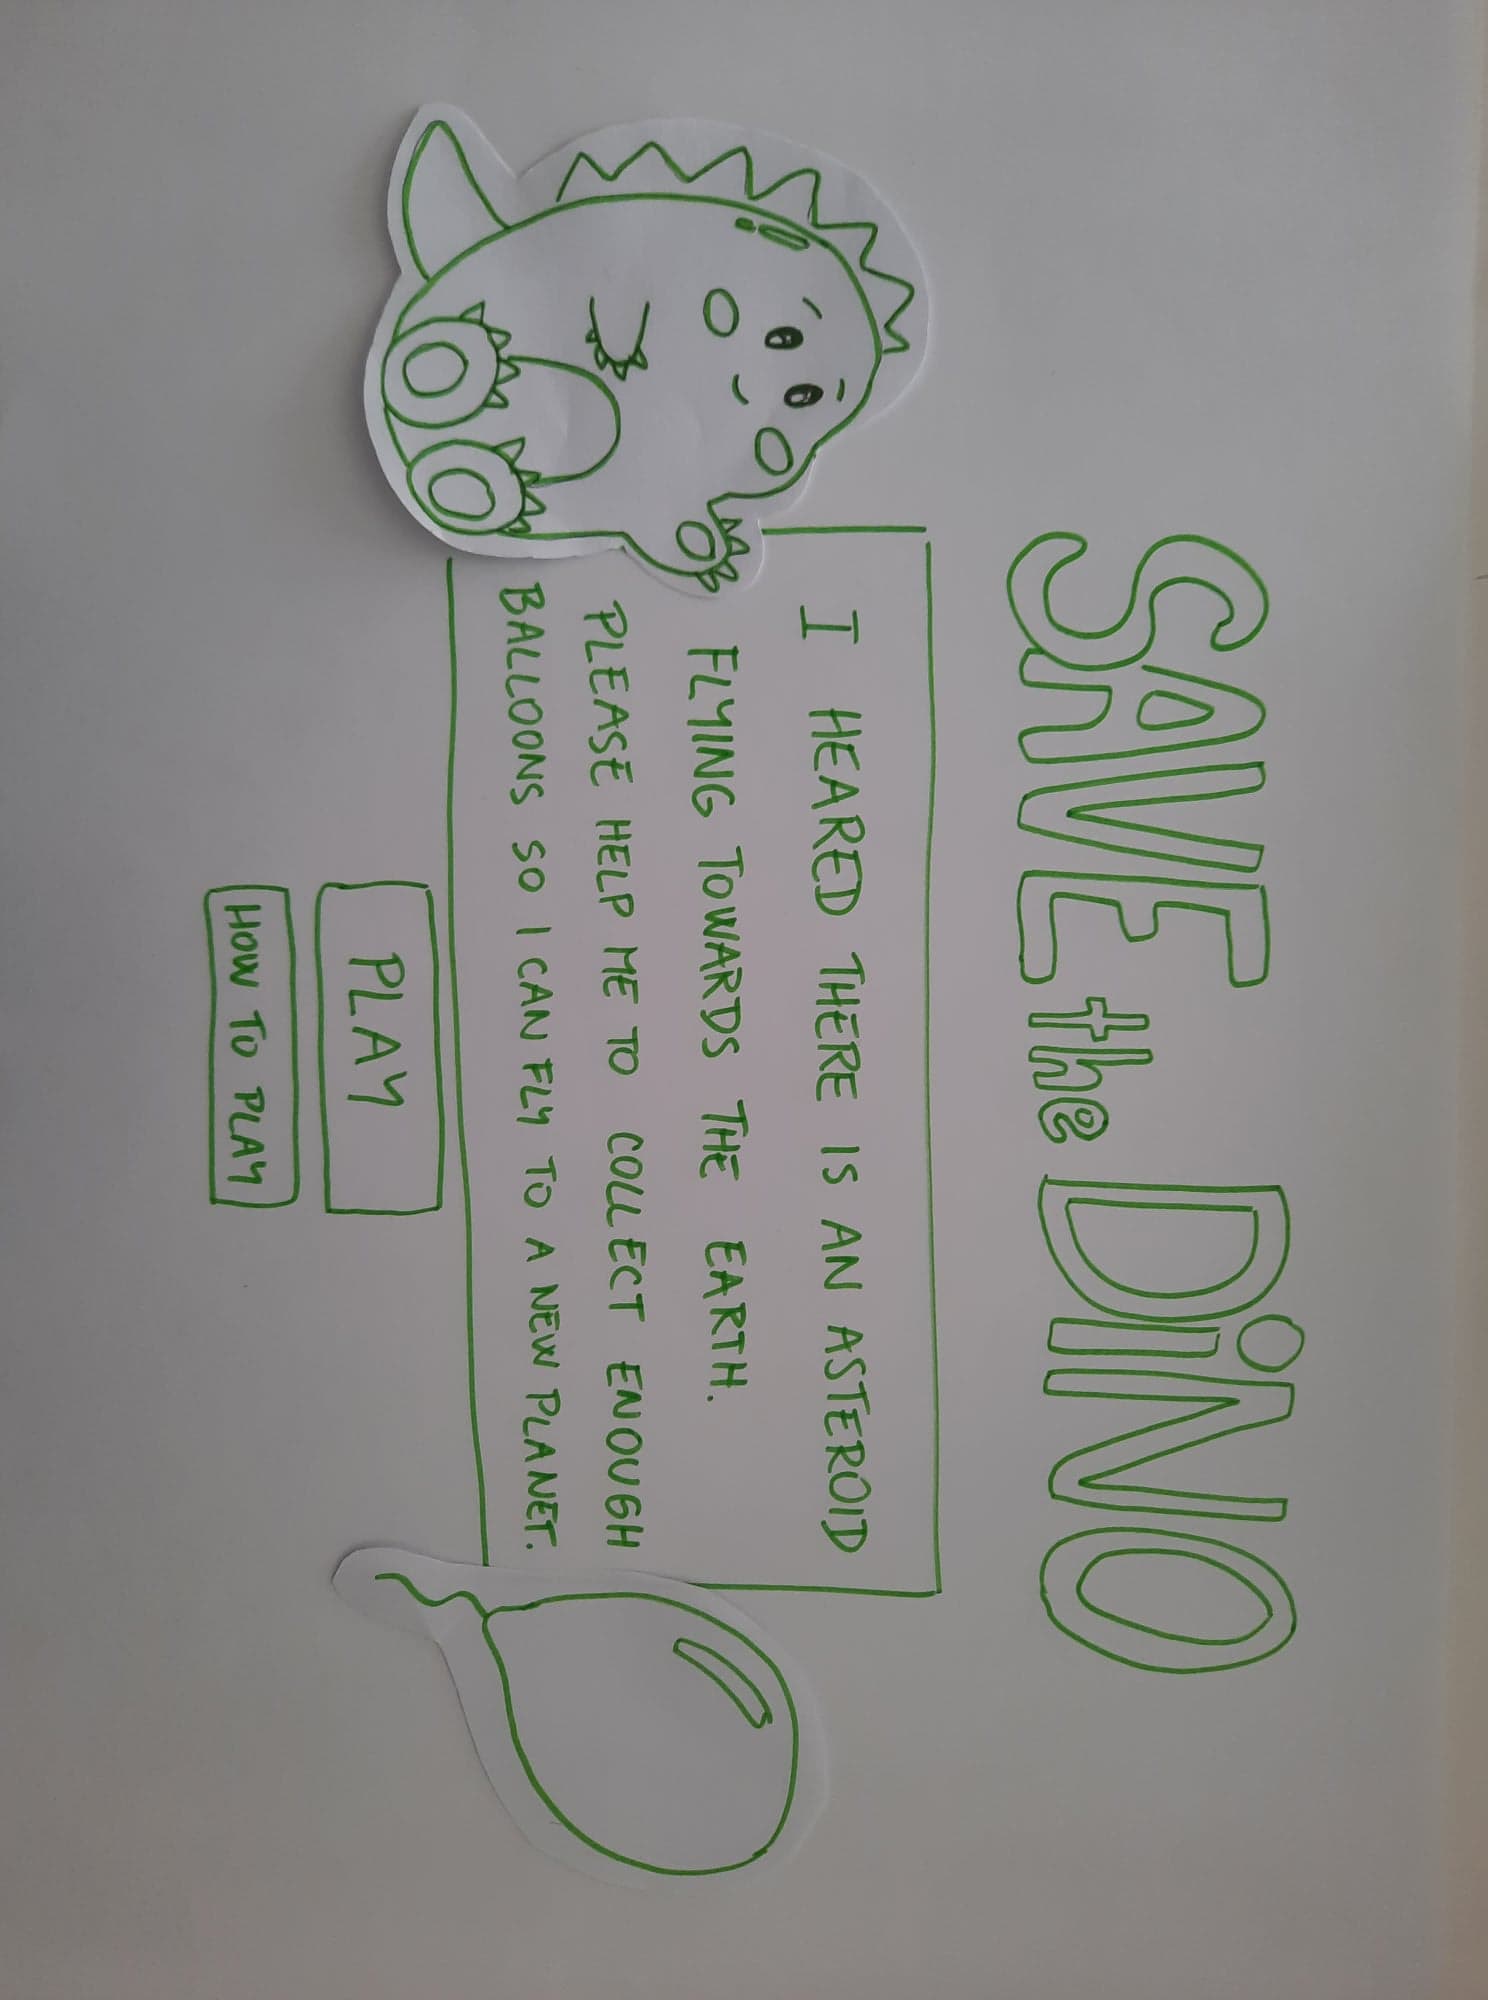 SAVE the DiNO
I HEARED THERE IS AN ASTEROID
FLYING TOWARDS THE EARTH.
PLEASE HELP ME TO COLLECT ENOUGH
BALLOONS SO I CAN FLY TO A NEW PLANET.
PLAY
HOW TO PLAY